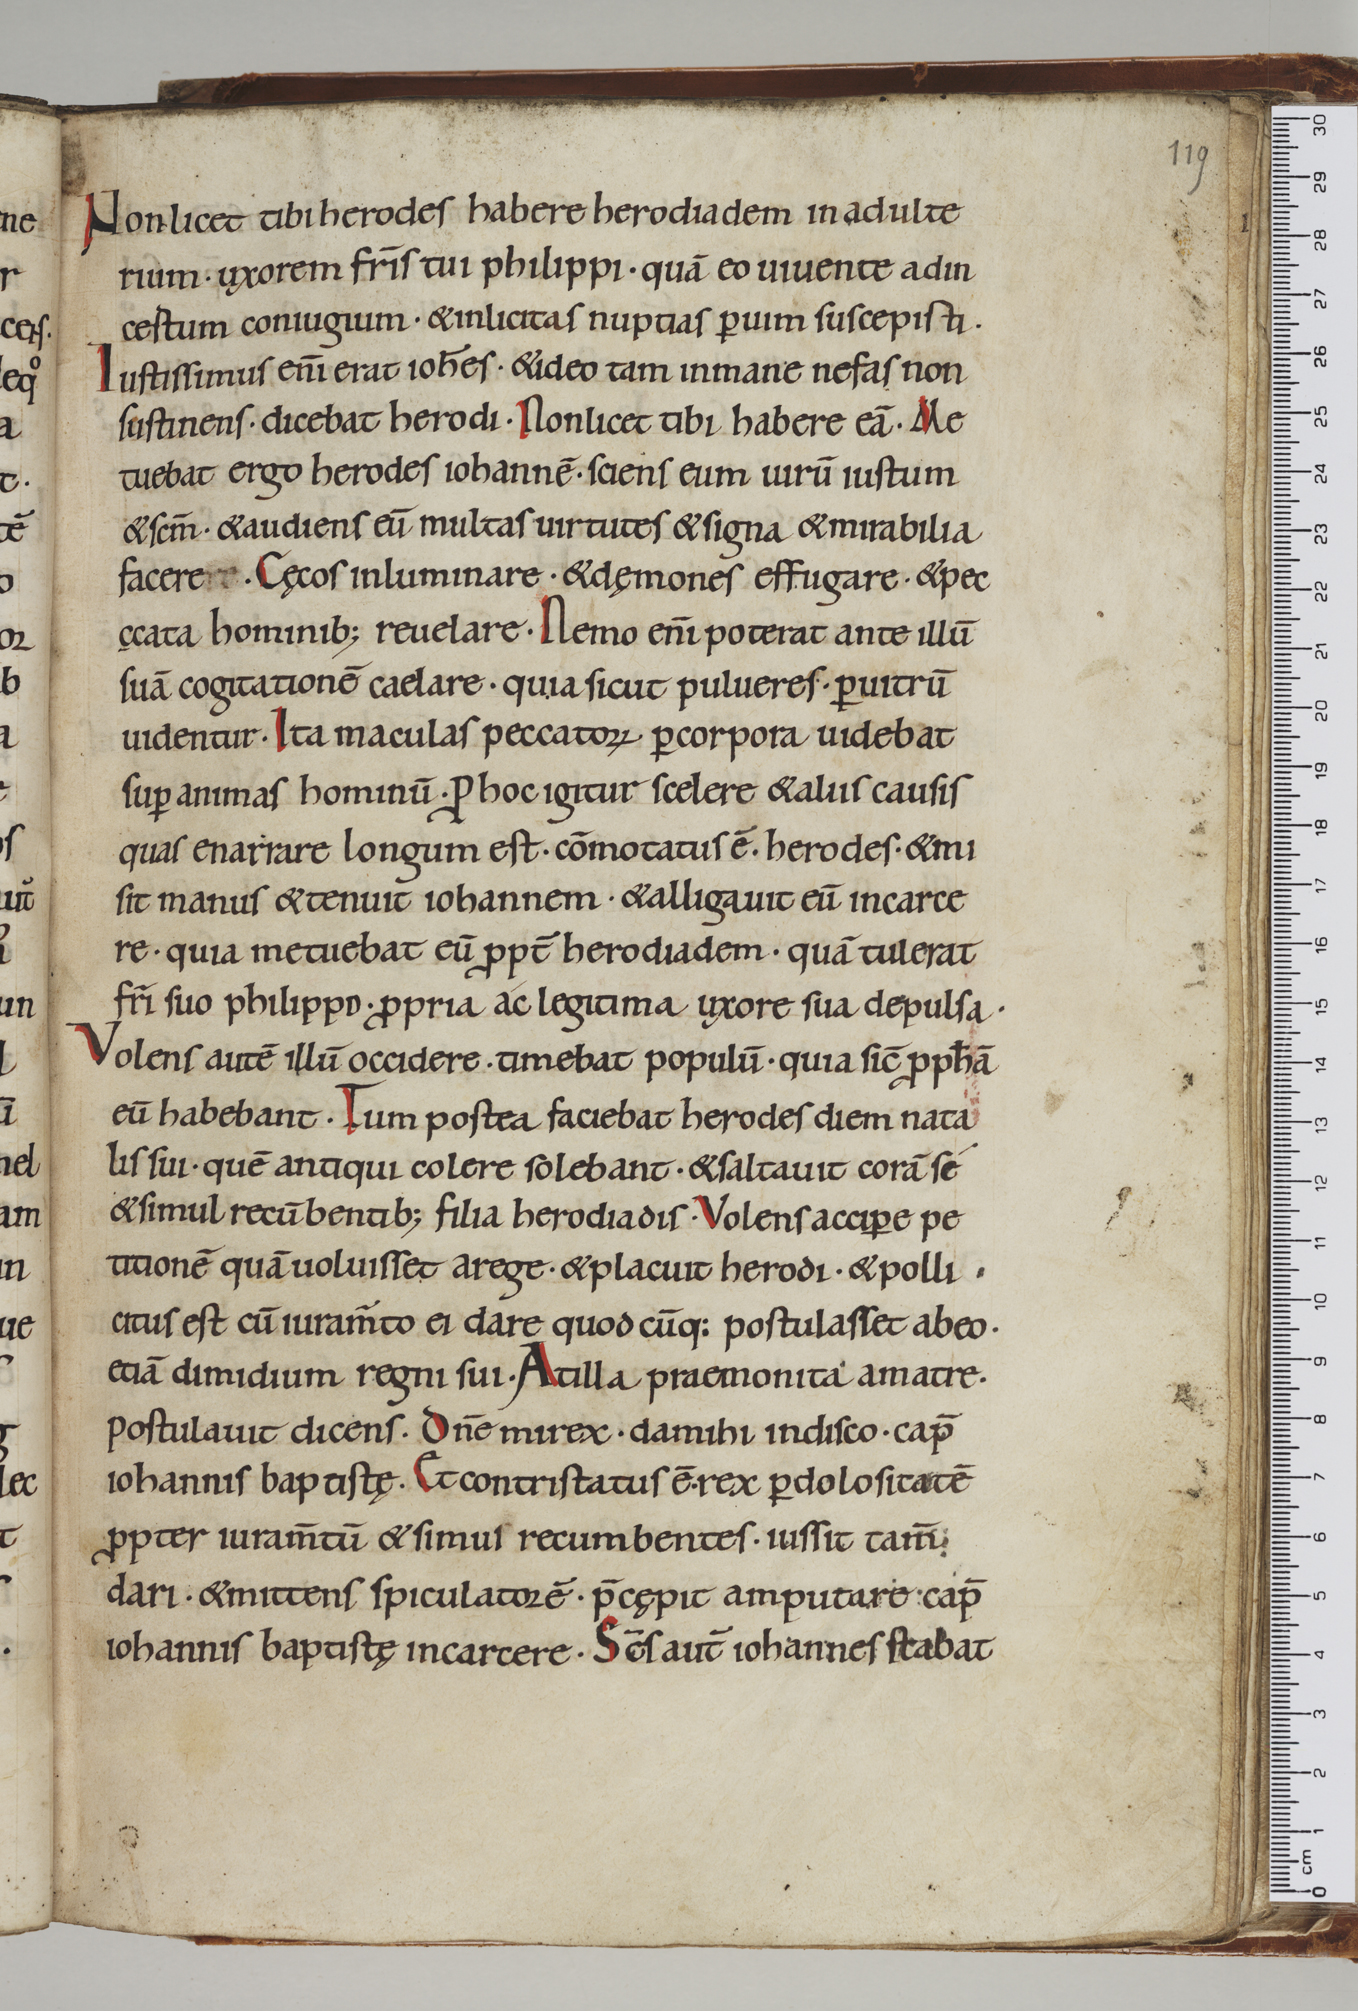 119
Non licet tibi herodes habere herodiadem in adulte
rium · uxorem fr̄is tui philippi · quā eo uiuente ad in
cestum coniugium · & inlicitas nuptias p̱ uim suscepisti ·
Iustissimus eni̅ erat ioh̄es · & ideo tam inmane nefas non
sustinens · dicebat herodi · Non licet tibi habere eā · Me
tuebat ergo herodes iohannē · sciens eum uirū iustum
& sc̄m · & audiens eū multas uirtutes & signa & mirabilia
facere · Cęcos inluminare · & dęmones effugare · & pec
ccata hominib; reuelare · Nemo eni̅ poterat ante illū
suā cogitationē caelare · quia sicut pulueres · p̱ uitrū
uidentur · Ita maculas peccatoꝝ · p̱ corpora uidebat
sup̱ animas hominū · P̱ hoc igitur scelere & aliis causis
quas enarrare longum est · cōmotatus ē · herodes · & mi
sit manus & tenuit iohannem · & alligauit eū in carce
re · quia metuebat eū ꝓpt̄ herodiadem · quā tulerat
fr̄i suo philippo · ꝓpria ac legitima uxore sua depulsa ·
Volens autē illū occidere · timebat populū · quia sic̄ ꝓph̄ā
eū habebant · Tum postea faciebat herodes diem nata
lis sui · quē antiqui colere solebant · & saltauit corā se
& simul recūbentib; filia herodiadis · Volens accip̱e pe
titionē quā uoluisset a rege · & placuit herodi · & polli
citus est cū iuram̄to ei dare quodcūq: postulasset ab eo ·
etiā dimidium regni sui · At illa praemonita a matre ·
postulauit dicens · Dn̄e mi rex · da mihi in disco · cap̄
iohannis baptistę · Et contristatus ē · rex p̱ dolositatē
ꝓpter iuram̄tū & simul recumbentes · iussit tam̄
dari · & mittens spiculatorē · p̄cępit amputare cap̄
iohannis baptistę in carcere · Sc̄s aut̄ iohannes stabat